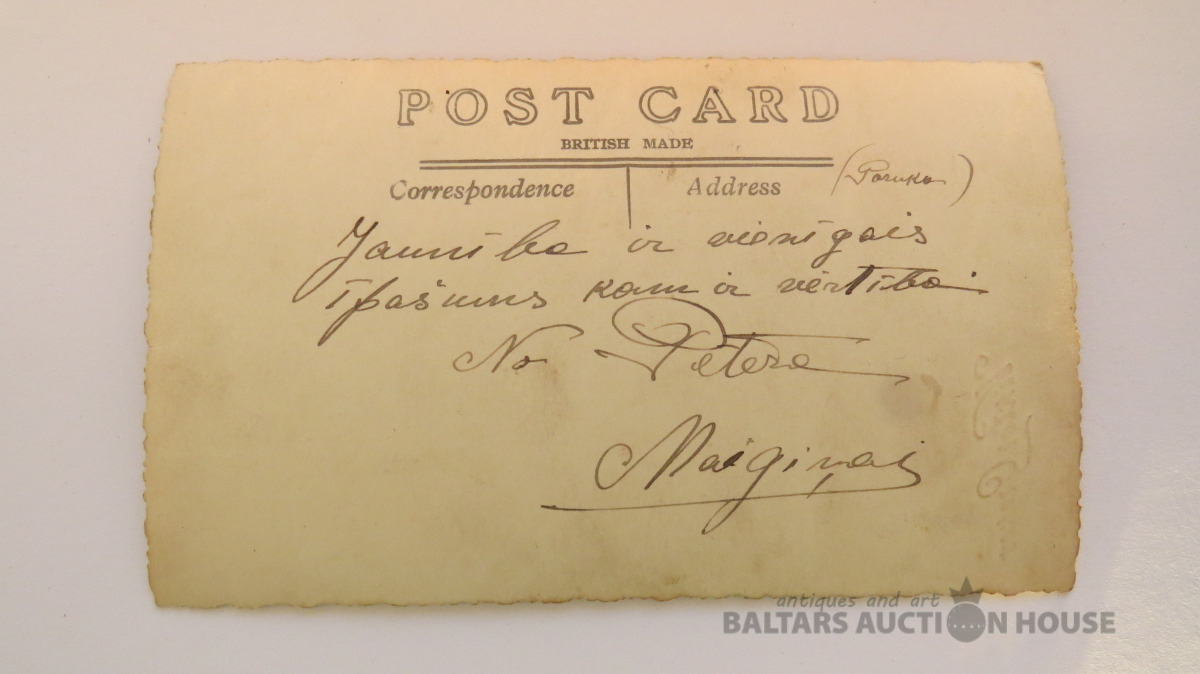 POST CARD
BRITISH MADE
Correspondence
Address
(Poruka)
Jaunība ir vienīgais
īpašums kam ir vērtība
No Pētera
Maigiņai
antiques and art
BALTARS AUCTION HOUSE